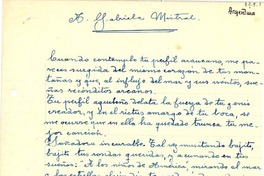 A Gabriela Mistral.
Argentina
Cuando contemplo tu perfil araucano, me pa-
reces surgida del mismo corazón de tus mon-
tañas y que, al influjo del mar y sus vientos, sue-
ñas recónditos arcanos.
Tu perfil aguileño delata la fuerza de tu genio
creador, y en el rictus amargo de tu boca, se
me ocurre que en ella ha quedado trunca tu me-
jor canción.
Soñadora incurable. Tal vez musitando bajito,
bajito tus rondas queridas, y acunando en tus
sueños: "A los niños de